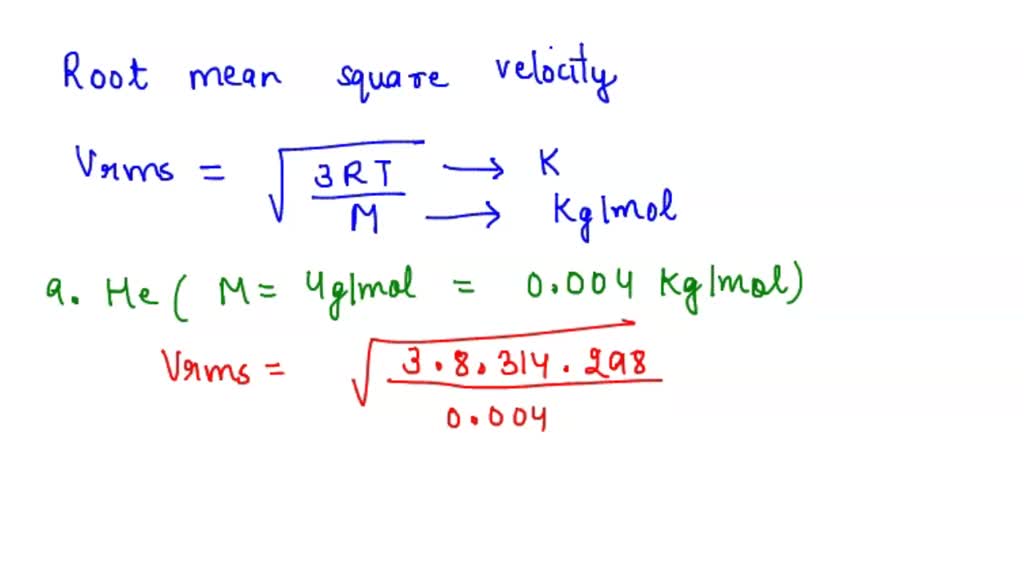 Root mean square velocity
Vrms = √(3RT/M) → K
→ Kg/mol
a. He ( M = 4g/mol = 0.004 Kg/mol)
Vrms = √(3.8.314.298/0.004)